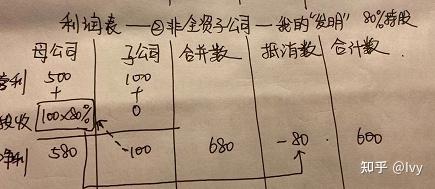 利润表——②非全资子公司——我的"发明" 80%持股
母公司 子公司 合并数 抵消数 合计数
营利 500 100
+ +
投收 100×80% 0
净利 580 100 680 -80 600
知乎 @Ivy